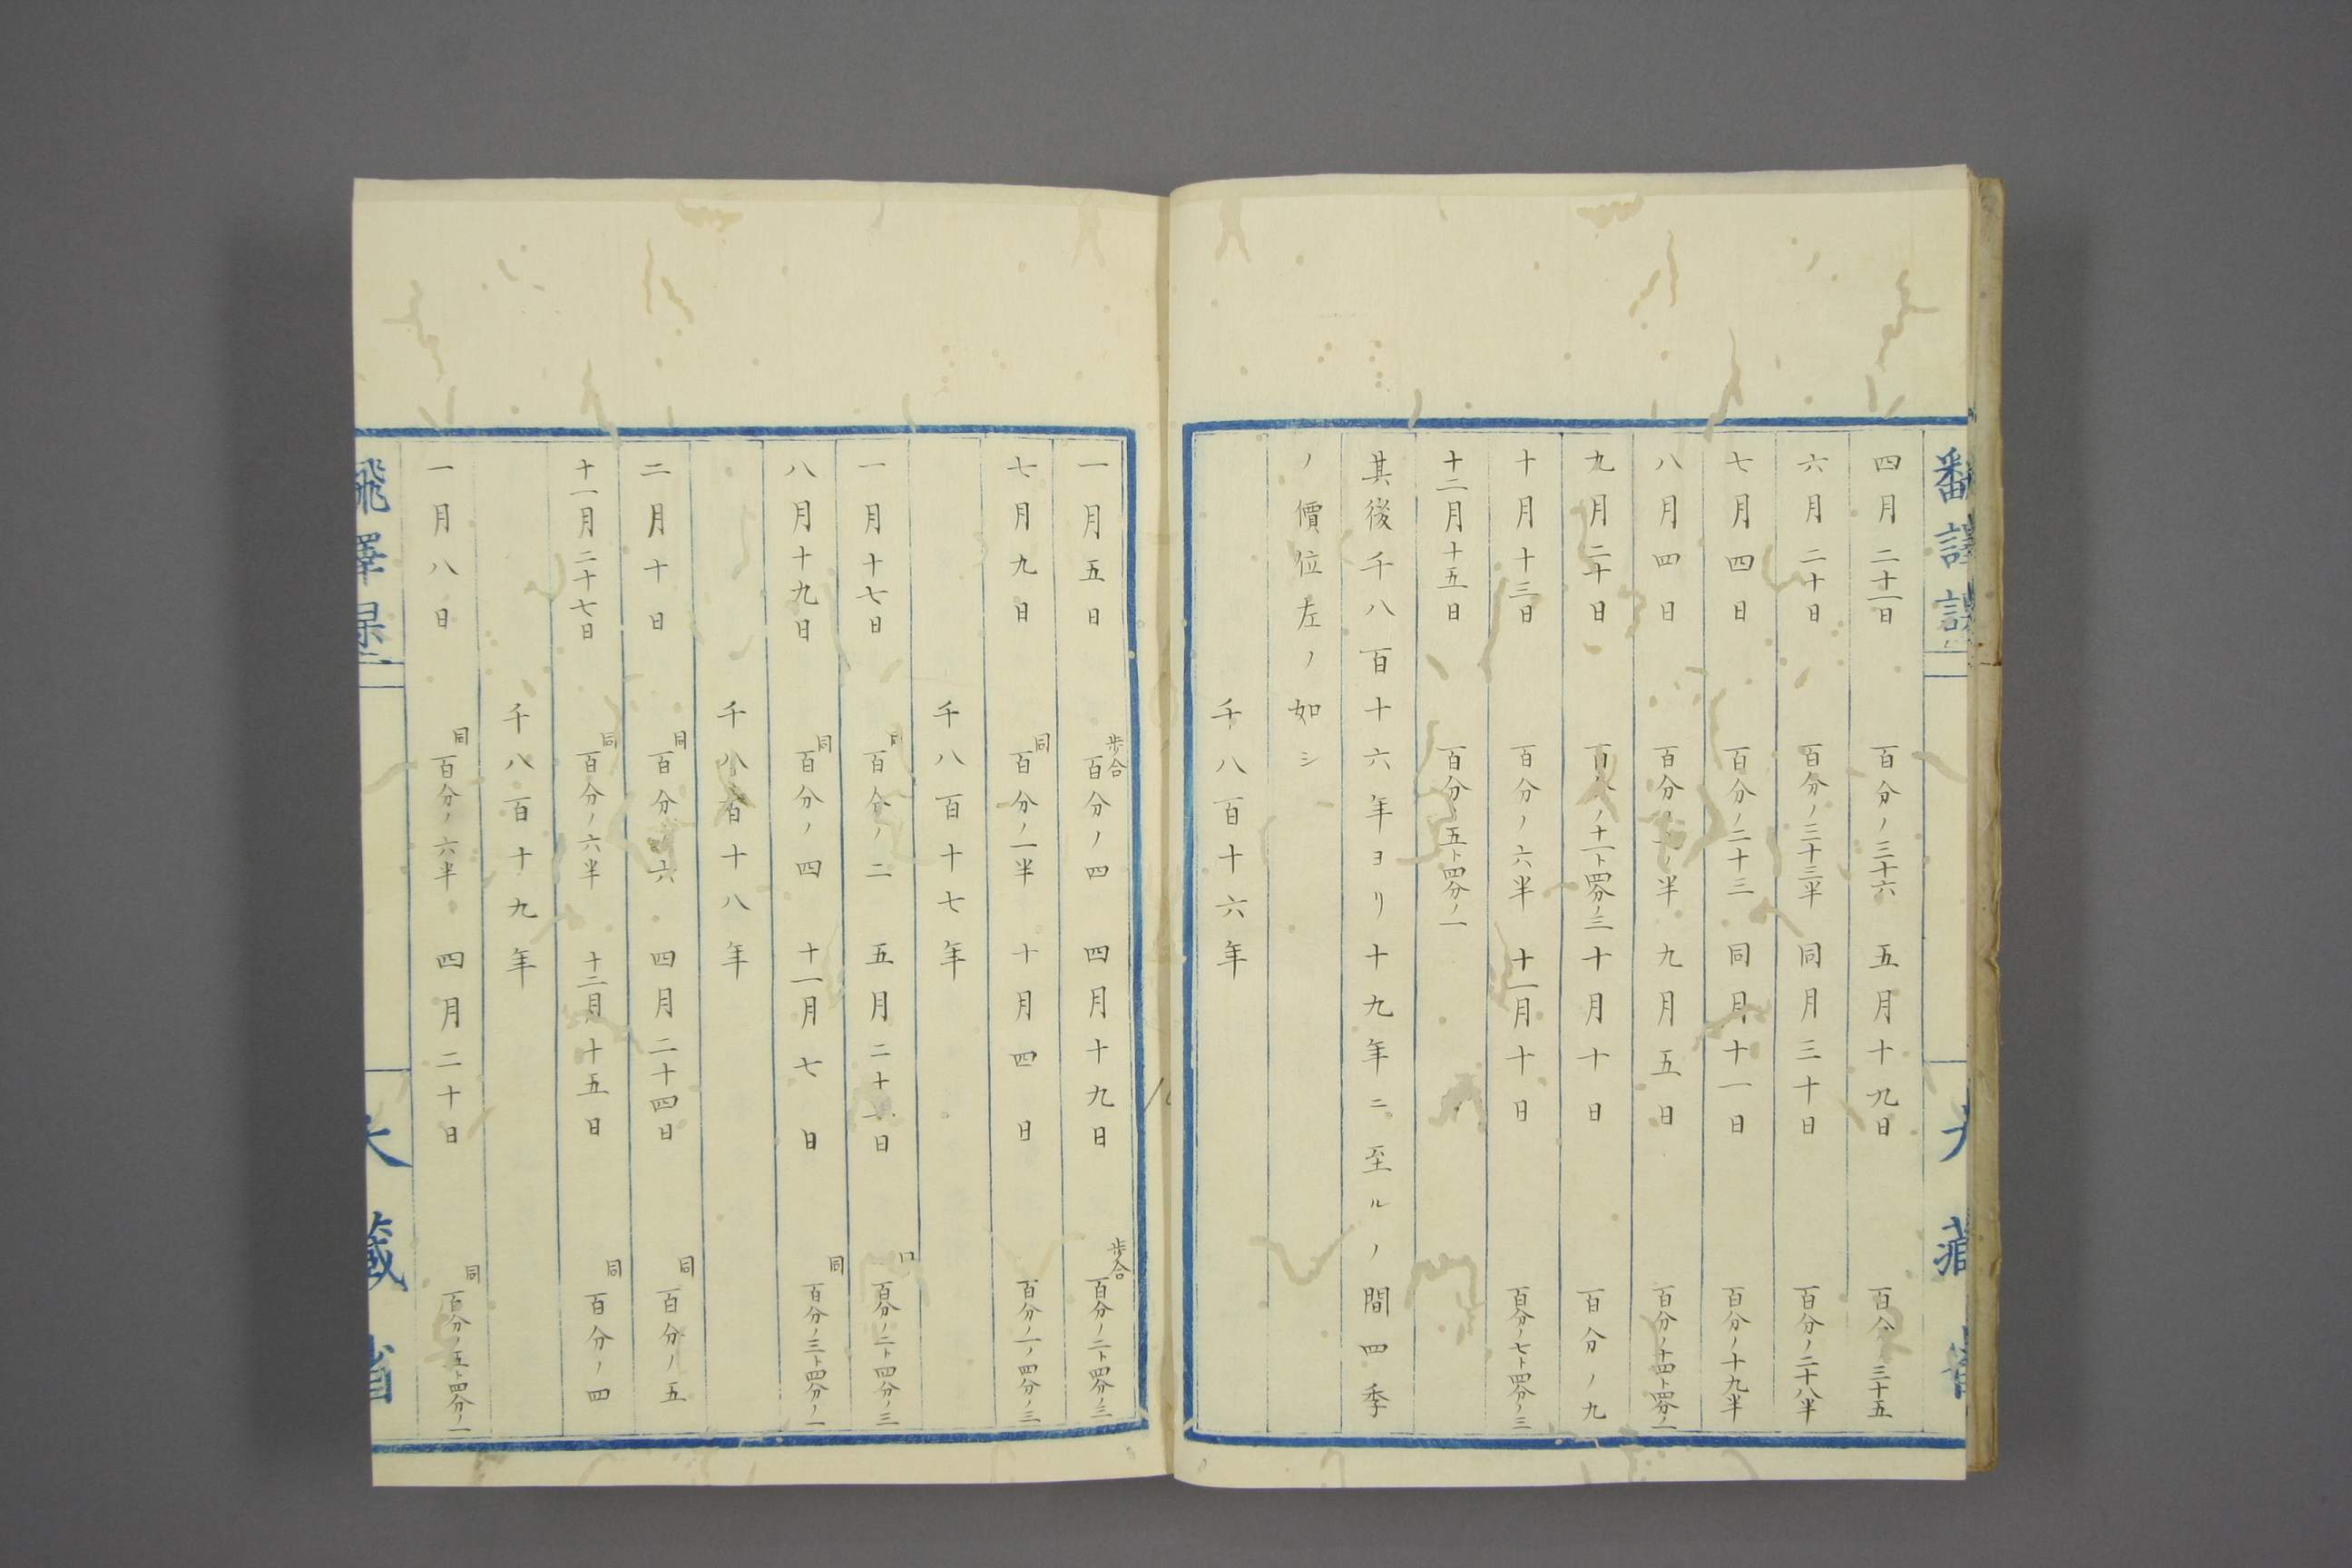 四月二十一日　百分ノ三十六　五月十九日　百分ノ三十五
六月二十日　百分ノ三十三半　同月三十日　百分ノ二十八半
七月四日　百分ノ二十三　同月十一日　百分ノ十九半
八月四日　百分　半　九月五日　百分ノ十四ト四分ノ一
九月二十日　百　ノ十一ト四分ノ三　十月十日　百分ノ九
十月十三日　百分ノ六半　十一月十日　百分ノ七ト四分ノ三
十二月十五日　百分ノ五ト四分ノ一
其後千八百十六年ヨリ十九年ニ至ルノ間四季
ノ價位左ノ如シ
千八百十六年
一月五日　歩合百分ノ四　四月十九日　歩合百分ノ二ト四分ノ三
七月九日　同百分ノ一半　十月四日　百分ノ一ノ四分ノ三
千八百十七年
一月十七日　同百分ノ二　五月二十　日　百分ノ二ト四分ノ三
八月十九日　同百分ノ四　十一月七日　同百分ノ三ト四分ノ一
千八百十八年
二月十日　同百分ノ六　四月二十四日　同百分ノ五
十一月二十七日　同百分ノ六半　十二月十五日　同百分ノ四
千八百十九年
一月八日　同百分ノ六半　四月二十日　同百分ノ五ト四分ノ一
大藏省